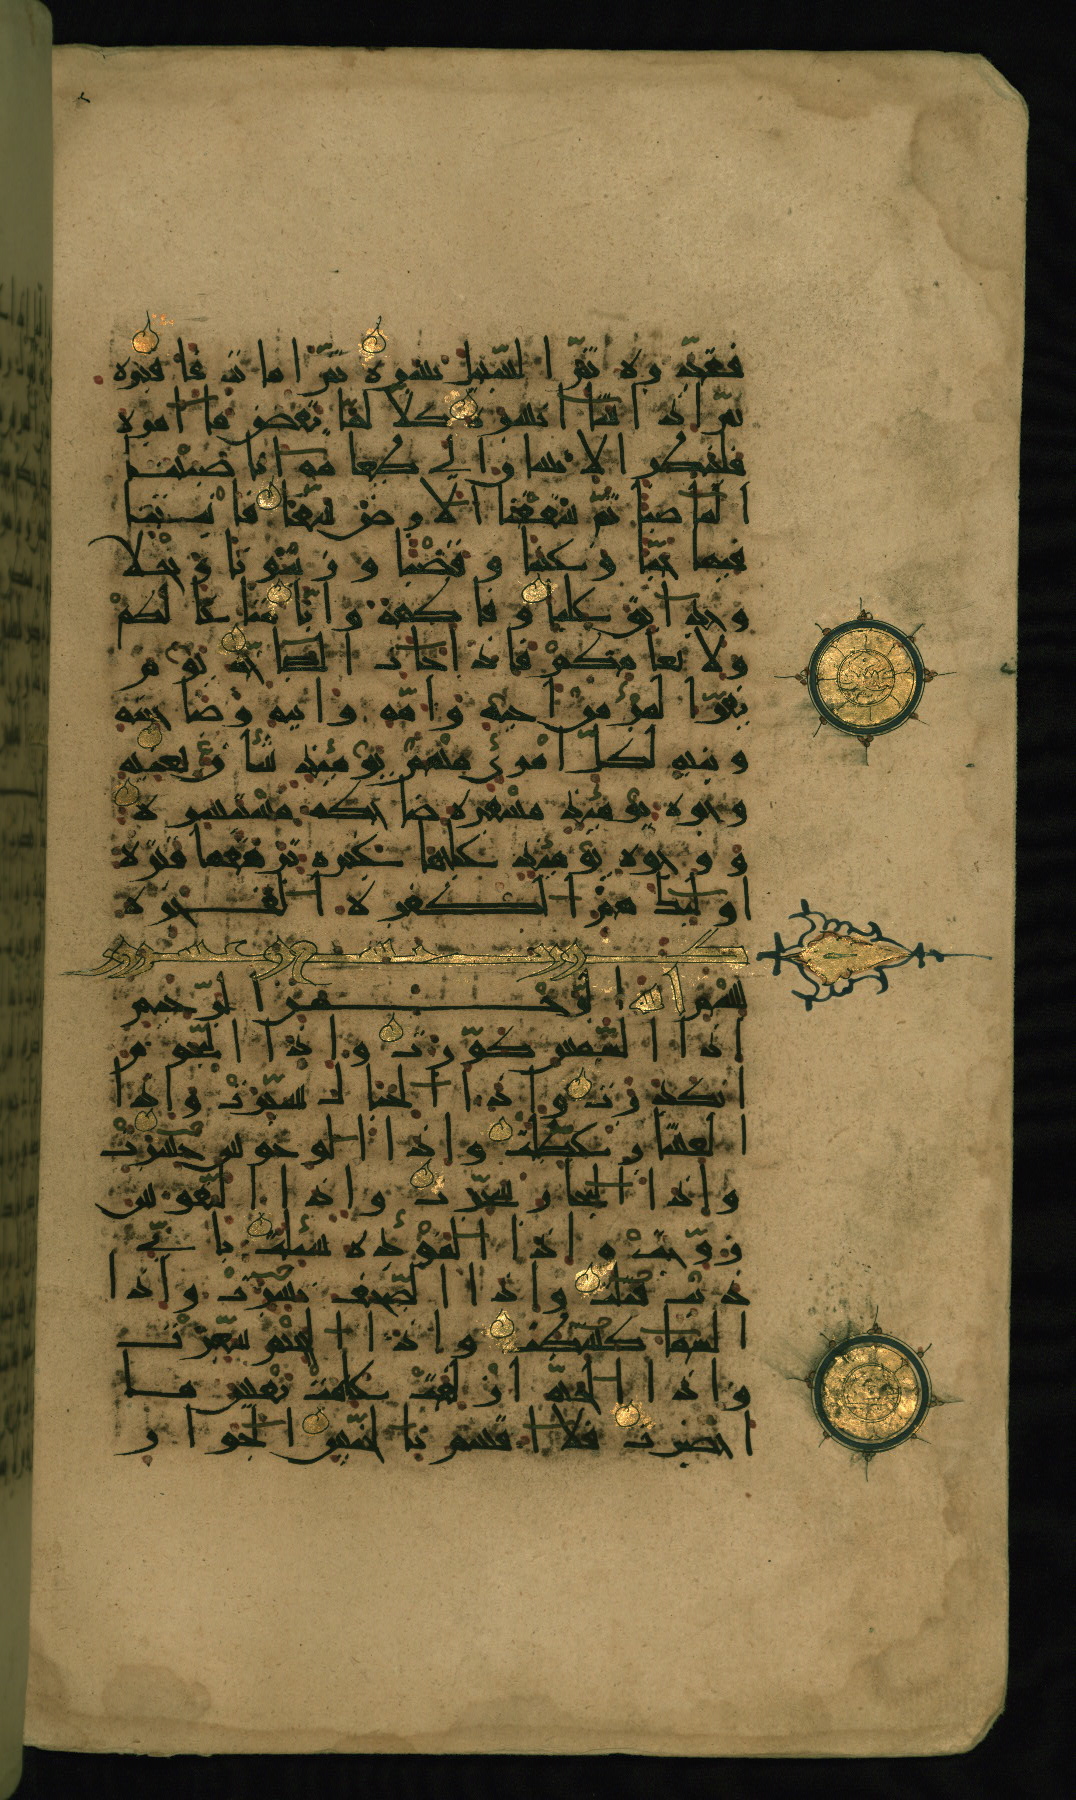 فقدّره ثمّ السّبيل يسّره ثمّ اماته فاقبره
ثمّ اذا شا انشره كلّا لمّا يقض ما امره
فلينظر الانسان الى طعامه انّا صببنا
الما صبّا ثمّ شققنا الارض شقّا فانبتنا
فيها حبّا وعنبا وقضبا وزيتونا ونخلا
وحدائق غلبا وفاكهة وابّا متاعا لكم
ولانعامكم فاذا جات الصّاخّة يوم
يفرّ المرء من اخيه وامّه وابيه وصاحبته
وبنيه لكلّ امرئ منهم يومئذ شأن يغنيه
وجوه يومئذ مسفرة ضاحكة مستبشرة
ووجوه يومئذ عليها غبرة ترهقها قترة
اولئك هم الكفرة الفجرة
بسم الله الرّحمن الرّحيم
اذا الشّمس كوّرت واذا النّجوم
انكدرت واذا الجبال سيّرت واذا
العشار عطّلت واذا الوحوش حشرت
واذا البحار سجّرت واذا النّفوس
زوّجت واذا الموءدة سئلت بايّ
ذنب قتلت واذا الصّحف نشرت واذا
السّما كشطت واذا الجحيم سعّرت
واذا الجنّة ازلفت علمت نفس ما
احضرت فلا اقسم بالخنّس الجوار